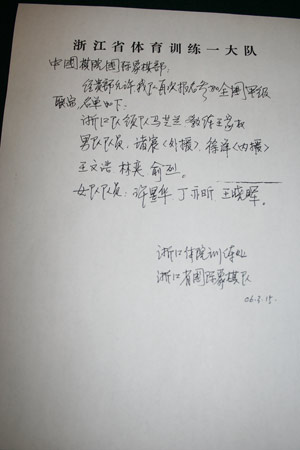 浙江省体育训练一大队
中国棋院国际象棋部:
经贵部允许我队再次报名参加全国甲级
联赛,名单如下:
浙江队领队马芝兰 教练王
男队队员:诸宸(外援)、徐 (内援)
王文浩 林奕 俞烈。
女队队员:许昱华 丁亦昕 王晓晖。
浙江体院训练处
浙江省国际象棋队
06.3.15.